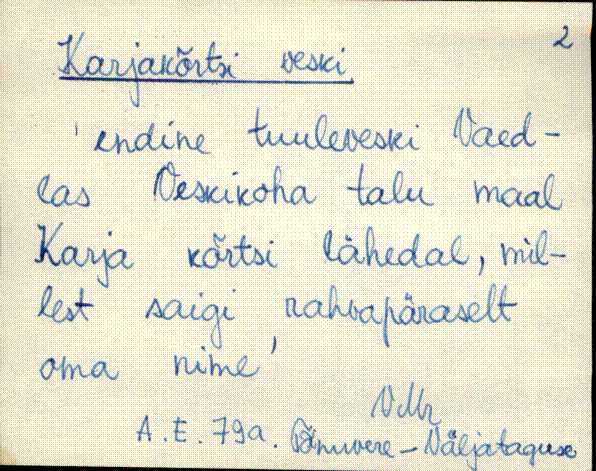 2
Karjakõrtsi veski
'endine tuuleveski Vaed-
las Veskikoha talu maal
Karja kõrtsi lähedal, mil-
lest saigi rahvapäraselt
oma nime'
VMr
A.E. 79a. Pänuvere - Väljataguse